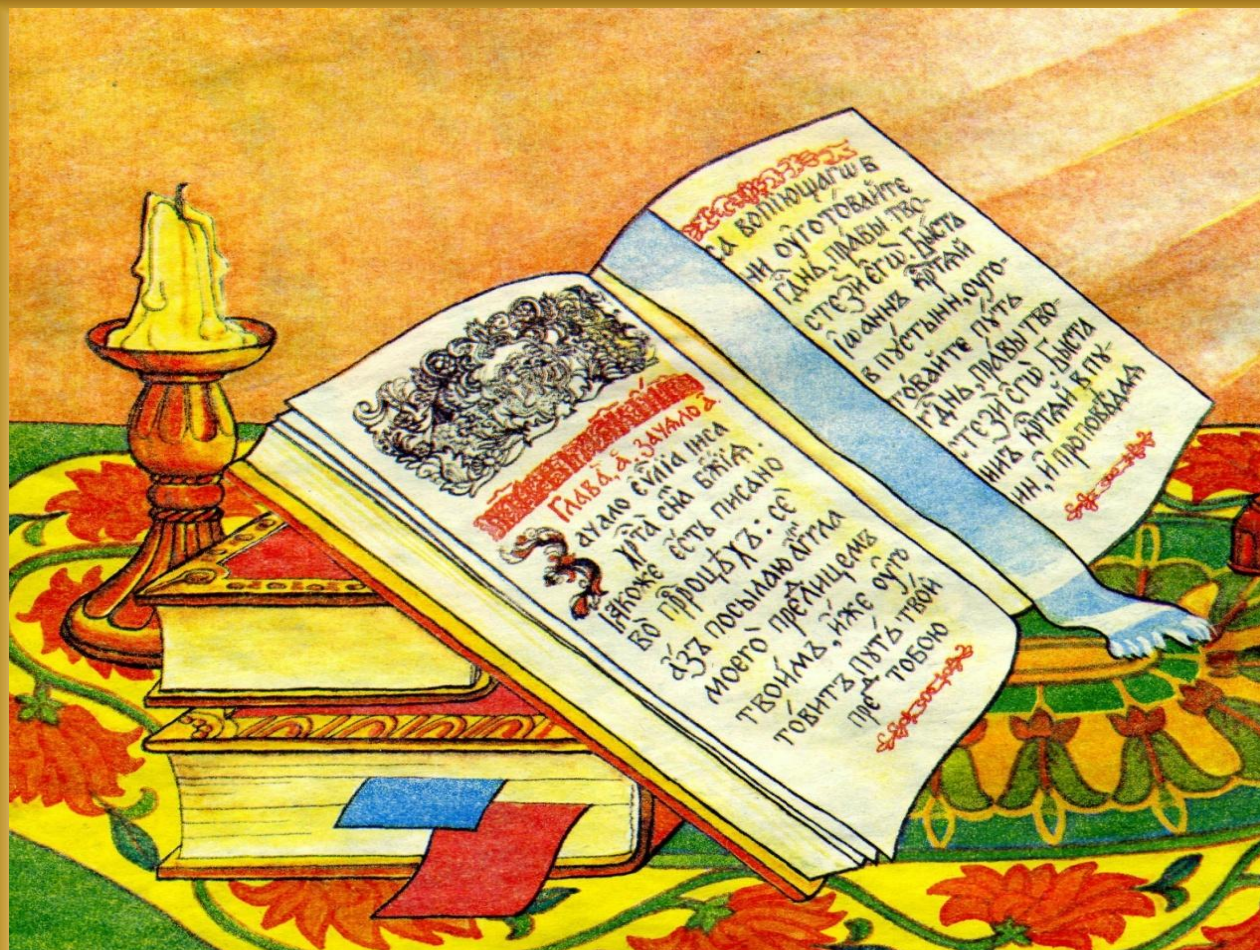 Глава̀. а҃. Зачало а҃.
Зачало єѵⷢ҇лїа іиса
хрⷭ҇та̀ сн҃а бж҃їѧ
ꙗ҆́коже є҆́сть писано
во прⷪ҇роцѣхъ: сѐ
а҆́зъ посылаю а҆́гг҃ла
моего̀ преⷣлицемъ
твои́мъ, и҆́же оу҆гото́витъ пꙋ́ть тво́й
преⷣ тобою
са вопїющагѡ в
ни оуготовайте
гдⷭ҇нь, правы тво-
стези єгѡ̀. Бысть
Їѡаннъ крⷭ҇тѧй
в пꙋстыни, оуго-
товайте пꙋ́ть
гдⷭ҇нь, правы тво-
стези єгѡ̀. Бысть
ннъ крⷭ҇тѧй в пꙋ-
ни, и проповѣдаѧ